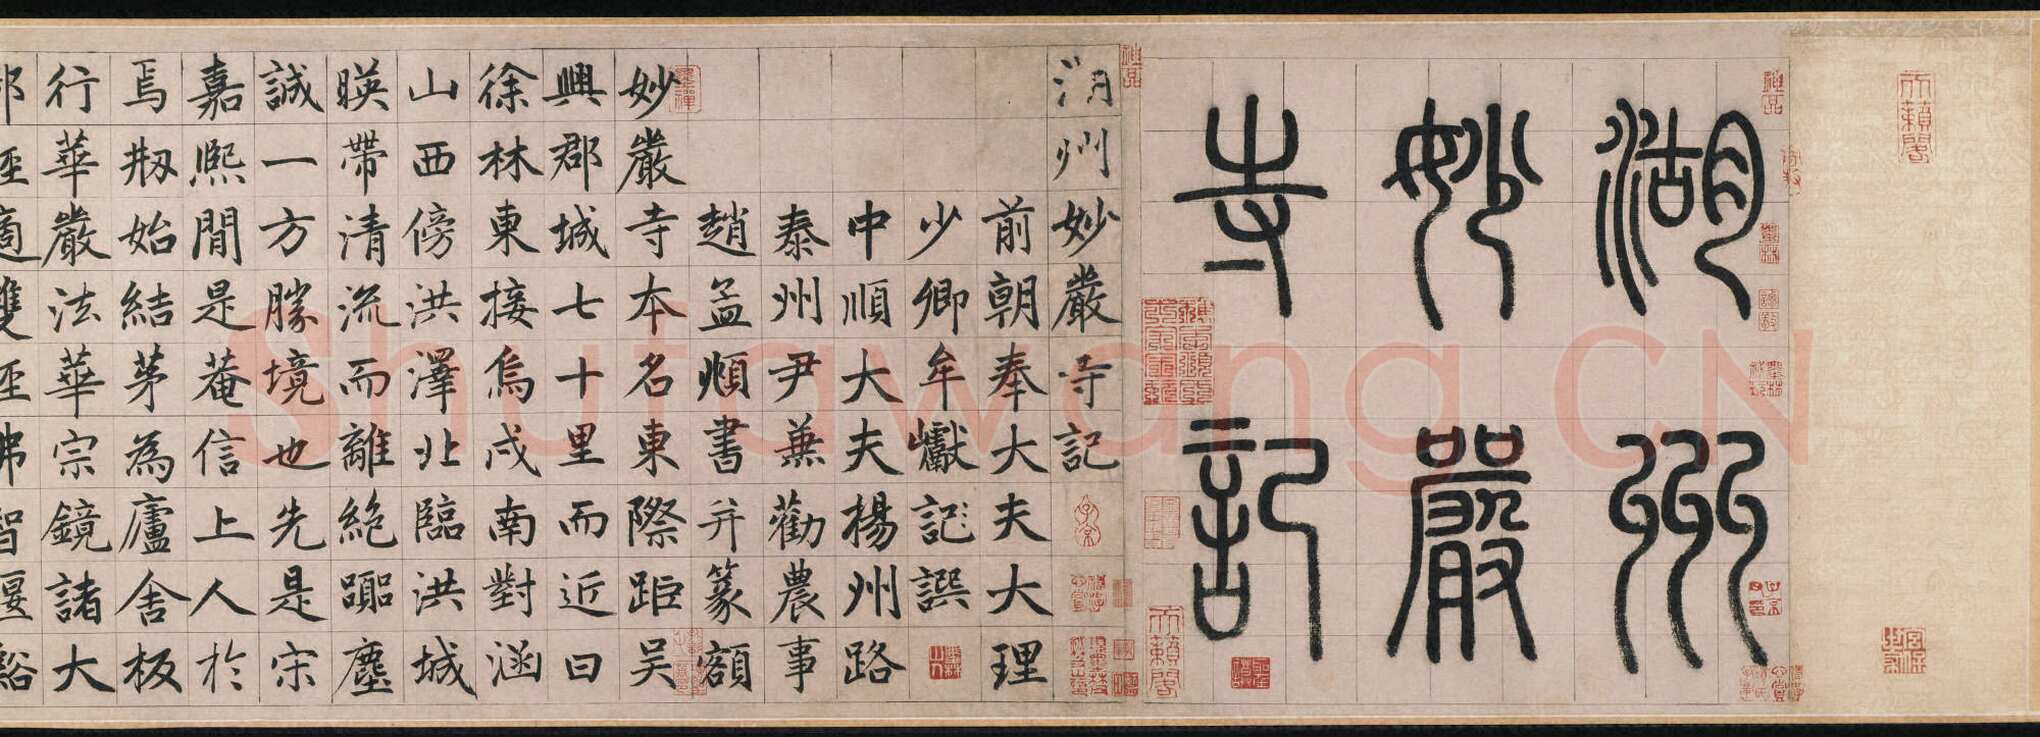 湖州
妙嚴
寺記
湖州妙嚴寺記
前朝奉大夫大理
少卿牟巘記譔
中順大夫楊州路
泰州尹兼勸農事
趙孟頫書并篆額
妙嚴寺本名東際距吳
興郡城七十里而近曰
徐林東接烏戍南對涵
山西傍洪澤北臨洪城
暎帶清流而離絕踂塵
誠一方勝境也先是宋
嘉熙間是菴信上人於
焉剏始結茅為廬舍板
行華嚴法華宗鏡諸大
Shufawang.CN
天籟閣